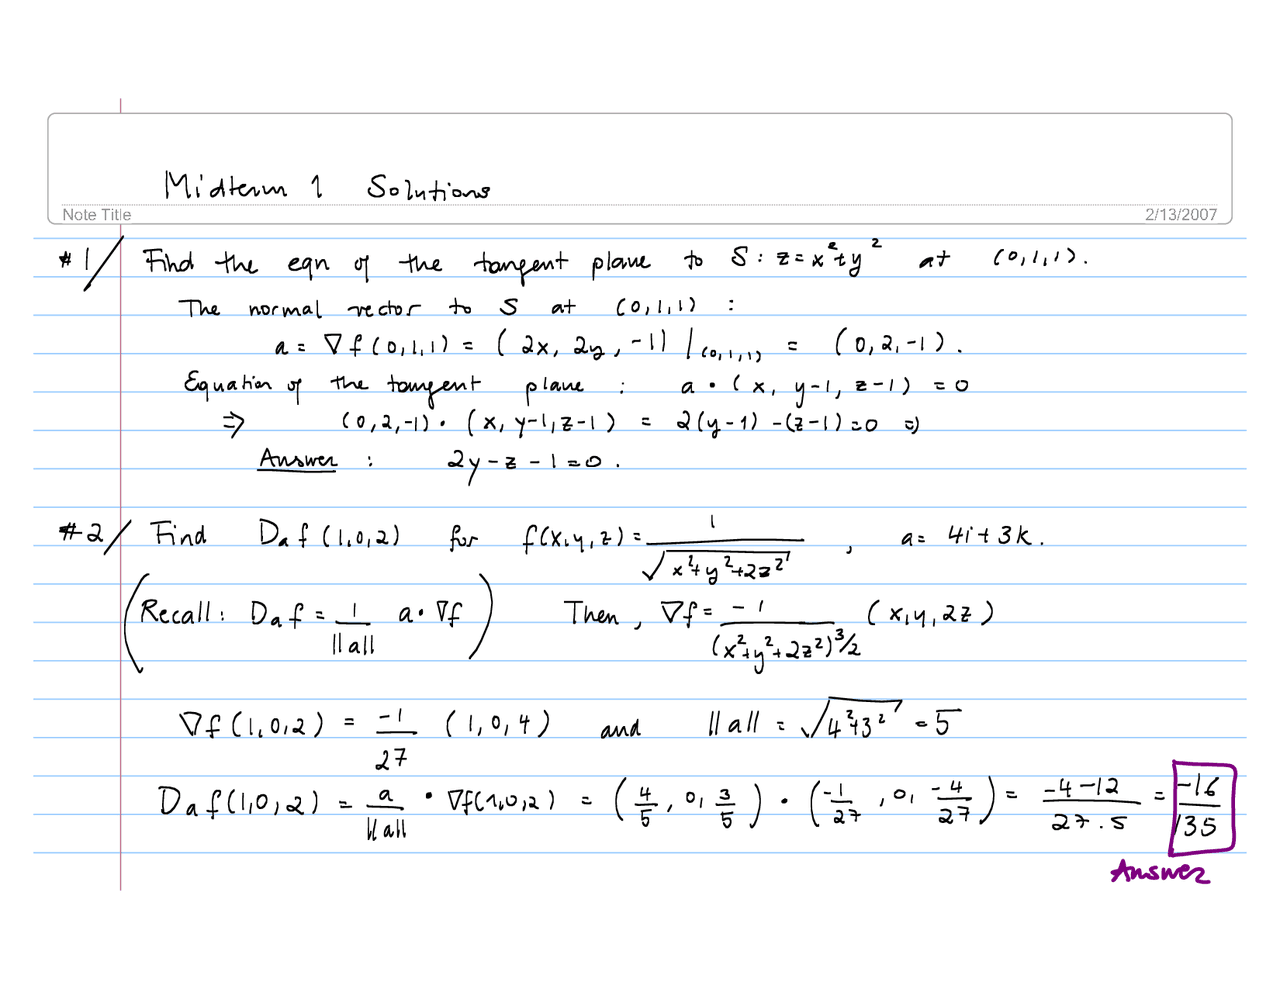 Midterm 1 Solutions
Note Title
2/13/2007
#1/ Find the eqn of the tangent plane to S: z=x²+y² at (0,1,1).
The normal vector to S at (0,1,1) :
a = ∇f(0,1,1) = (2x, 2y, -1) |(0,1,1) = (0,2,-1).
Equation of the tangent plane : a • (x, y-1, z-1) = 0
⇒ (0,2,-1) • (x, y-1, z-1) = 2(y-1) -(z-1)=0 ⇒
Answer : 2y-z-1=0.
#2/ Find Daf(1,0,2) for f(x,y,z) = 1/√(x²+y²+2z²), a= 4i+3k.
(Recall: Daf = 1/||a|| a•∇f) Then, ∇f = -1/(x²+y²+2z²)^3/2 (x,y,2z)
∇f(1,0,2) = -1/27 (1,0,4) and ||a|| = √(4²+3²) = 5
Daf(1,0,2) = a/||a|| • ∇f(1,0,2) = (4/5, 0, 3/5) • (-1/27, 0, -4/27) = -4-12/27.5 = -16/135
Answer